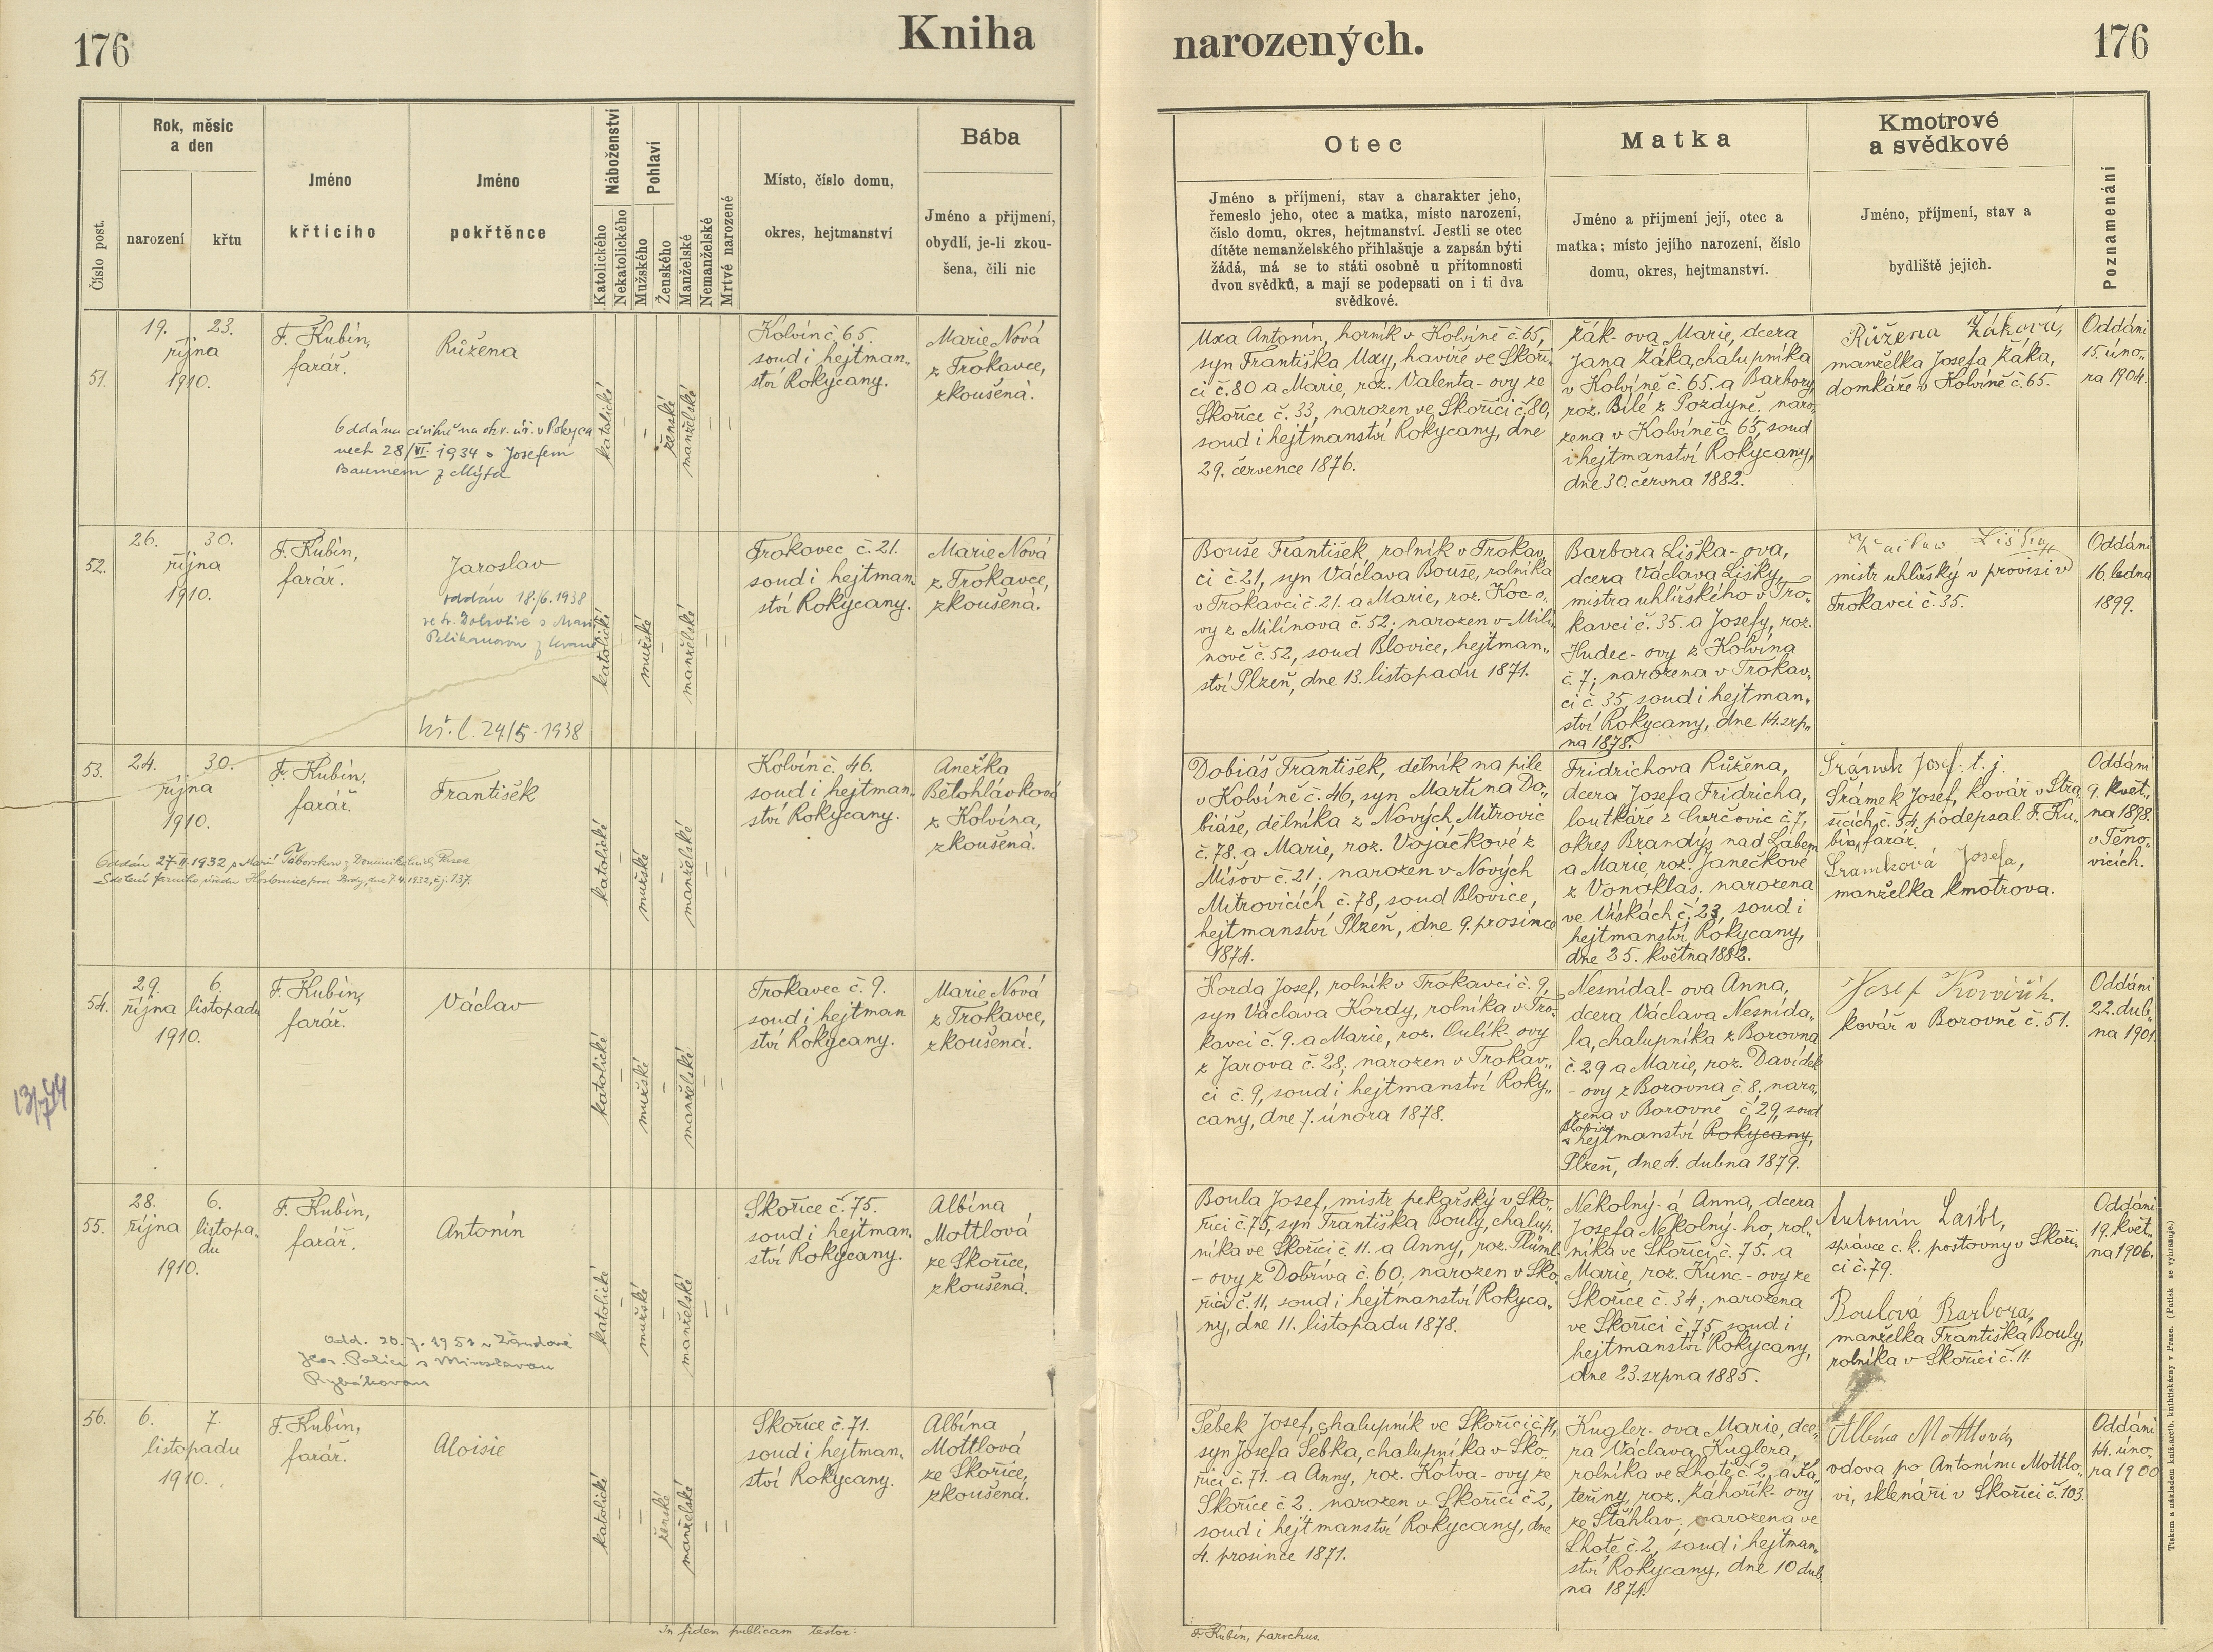 176
Kniha
narozených.
176
Číslo post.
Rok, měsíc
a den
narození
křtu
Jméno
křtícího
Jméno
pokřtěnce
Náboženství
Katolického
Nekatolického
Pohlaví
Mužského
Ženského
Manželské
Nemanželské
Mrtvé narozené
Místo, číslo domu,
okres, hejtmanství
Bába
Jméno a přijmení,
obydlí, je-li zkou-
šena, čili nic
Otec
Jméno a příjmení, stav a charakter jeho,
řemeslo jeho, otec a matka, místo narození,
číslo domu, okres, hejtmanství. Jestli se otec
dítěte nemanželského přihlašuje a zapsán býti
žádá, má se to státi osobně u přítomnosti
dvou svědků, a mají se podepsati on i ti dva
svědkové.
Matka
Jméno a přijmení její, otec a
matka; místo jejího narození, číslo
domu, okres, hejtmanství.
Kmotrové
a svědkové
Jméno, příjmení, stav a
bydliště jejich.
Poznamenání
51.
19. 23.
října
1910.
F. Kubín,
farář.
Růžena
Oddána civilně na okr. úř. v Rokyca
nech 28/VI. 1934 s Josefem
Baumem z Mýta
katolické
–
–
ženské
manželské
–
–
Kolvín č. 65.
soud i hejtman„
ství Rokycany.
Marie Nová
z Trokavce,
zkoušená.
Uxa Antonín, horník v Kolvíně č. 65,
syn Františka Uxy, havíře ve Skoři„
ci č. 80 a Marie, roz. Valenta-ovy ze
Skořice č. 33, narozen ve Skořici č. 80,
soud i hejtmanství Rokycany, dne
29. července 1876.
Žák-ova Marie, dcera
Jana Žáka, chalupníka
v Kolvíně č. 65. a Barbory,
roz. Bílé z Pozdyně. naro„
zena v Kolvíně č. 65, soud
i hejtmanství Rokycany,
dne 30. června 1882.
Růžena Žáková,
manželka Josefa Žáka,
domkáře v Kolvíně č. 65.
Oddáni
15. úno„
ra 1904.
52.
26. 30.
října
1910.
F. Kubín,
farář.
Jaroslav
oddán 18./6. 1938
ve fr. Dobrotivé s Marií
Pelikanovou z
kř. l. 24/5. 1938
katolické
–
mužské
–
manželské
–
–
Trokavec č. 21.
soud i hejtman„
ství Rokycany.
Marie Nová
z Trokavce,
zkoušená.
Bouše František, rolník v Trokav„
ci č. 21, syn Václava Bouše, rolníka
v Trokavci č. 21. a Marie, roz. Koc-o„
vy z Milínova č. 52; narozen v Milí„
nově č. 52, soud Blovice, hejtman„
ství Plzeň, dne 13. listopadu 1871.
Barbora Liška-ova,
dcera Václava Lišky,
mistra uhlířského v Tro„
kavci č. 35. a Josefy, roz.
Hudec-ovy z Kolvína
č. 7; narozena v Trokav„
ci č. 35, soud i hejtman„
ství Rokycany, dne 14. srp„
na 1878.
Liška
mistr uhlířský v provisi v
Trokavci č. 35.
Oddáni
16. ledna
1899.
53.
24. 30.
října
1910.
F. Kubín,
farář.
František
Oddán 27. II. 1932 s Marií Táborskou z
Sdělení farního úřadu Hostomice pod Brdy, dne 7.4.1932, čj. 137.
katolické
–
mužské
–
manželské
–
–
Kolvín č. 46.
soud i hejtman„
ství Rokycany.
Anežka
Bělohlávková
z Kolvína,
zkoušená.
Dobiáš František, dělník na pile
v Kolvíně č. 46, syn Martina Do„
biáše, dělníka z Nových Mitrovic
č. 78. a Marie, roz. Vojáčkové z
Míšov č. 21; narozen v Nových
Mitrovicích č. 78, soud Blovice,
hejtmanství Plzeň, dne 9. prosince
1874.
Fridrichova Růžena,
dcera Josefa Fridricha,
loutkáře z Čurčovic č. 7,
okres Brandýs nad Labem
a Marie, roz. Janečkové
z Vonoklas. narozena
ve Vískách č. 23, soud i
hejtmanství Rokycany,
dne 25. května 1882.
Šrámek Josef. t. j.
Šrámek Josef, kovář v Stra„
šicích, č. 54, podepsal F. Ku„
bín, farář.
Šramková Josefa,
manželka kmotrova.
Oddáni
9. květ„
na 1898.
v Těno„
vicích.
54.
29. 6.
října listopadu
1910.
F. Kubín,
farář.
Václav
13/7 44
katolické
–
mužské
–
manželské
–
–
Trokavec č. 9.
soud i hejtman
ství Rokycany.
Marie Nová
z Trokavce,
zkoušená.
Korda Josef, rolník v Trokavci č. 9,
syn Václava Kordy, rolníka v Tro„
kavci č. 9. a Marie, roz. Oulík-ovy
z Jarova č. 28; narozen v Trokav„
ci č. 9, soud i hejtmanství Roky„
cany, dne 7. února 1878.
Nesnídal-ova Anna,
dcera Václava Nesnída„
la, chalupníka z Borovna
č. 29 a Marie, roz. Davídek
-ovy z Borovna č. 8; naro„
zena v Borovně č. 29, soud
Blovice
i hejtmanství Rokycany,
Plzeň, dne 4. dubna 1879.
Josef
kovář v Borovně č. 51.
Oddáni
22. dub„
na 1901.
55.
28. 6.
října listopa„
du
1910.
F. Kubín,
farář.
Antonín
Odd. 20.7. 1951 v Žandově
u Čes. Polici s Miroslavou
Rybákovou
katolické
–
mužské
–
manželské
–
–
Skořice č. 75.
soud i hejtman„
ství Rokycany.
Albína
Mottlová
ze Skořice,
zkoušená.
Boula Josef, mistr pekařský v Sko„
řici č. 75, syn Františka Bouly, chalup„
níka ve Skořici č. 11. a Anny, roz. Tlüml
-ovy z Dobřiva č. 60; narozen v Sko„
řici č. 11, soud i hejtmanství Rokyca„
ny, dne 11. listopadu 1878.
Nekolný-á Anna, dcera
Josefa Nekolný-ho, rol„
níka ve Skořici, č. 75. a
Marie, roz. Kunc-ovy ze
Skořice č. 34; narozena
ve Skořici č. 75, soud i
hejtmanství Rokycany,
dne 23. srpna 1885.
Antonín Laibl,
správce c. k. poštovny v Skoři„
ci č. 79.
Boulová Barbora,
manželka Františka Bouly,
rolníka v Skořici č. 11.
Oddáni
19. květ„
na 1906.
56.
6. 7.
listopadu
1910.
F. Kubín,
farář.
Aloisie
katolické
–
–
ženské
manželské
–
–
Skořice č. 71.
soud i hejtman„
ství Rokycany.
Albína
Mottlová
ze Skořice,
zkoušená.
Šebek Josef, chalupník ve Skořici č. 71,
syn Josefa Šebka, chalupníka v Sko„
řici č. 71. a Anny, roz. Kotva-ovy ze
Skořice č. 2. narozen v Skořici č. 2,
soud i hejtmanství Rokycany, dne
4. prosince 1871.
Kugler-ova Marie, dce„
ra Václava Kuglera,
rolníka ve Lhotě č. 2, a Ka„
teřiny, roz. Záhořík-ovy
ze Šťáhlav; narozena ve
Lhotě č. 2, soud i hejtman„
ství Rokycany, dne 10 dub„
na 1874.
Albína Mottlová,
vdova po Antonínu Mottlo„
vi, sklenáři v Skořici č. 103.
Oddáni
14. úno„
ra 1900
In fidem publicam testor:
F. Kubín, parochus.
Tiskem a nákladem kníž. arcib. knihtiskárny v Praze. (Patisk se vyhrazuje.)